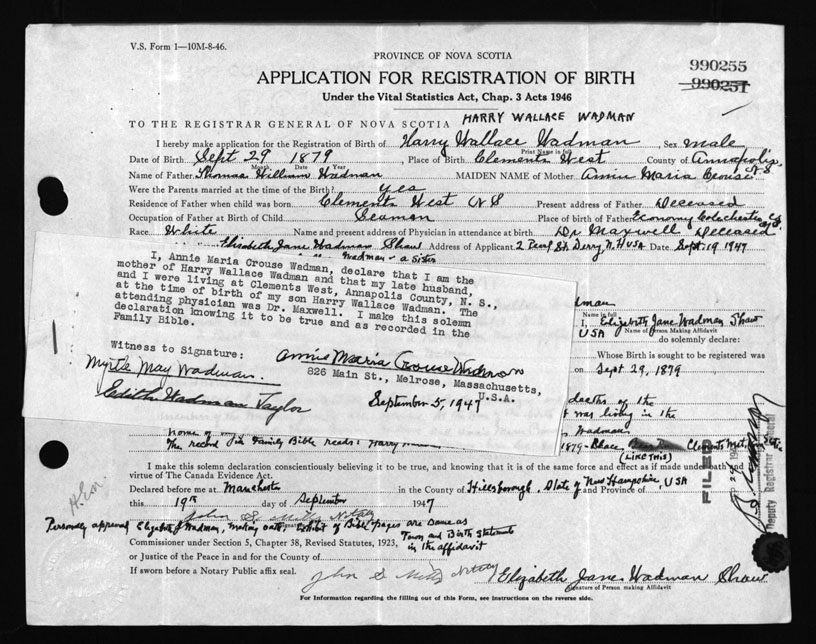 V.S. Form 1—10M-8-46.
PROVINCE OF NOVA SCOTIA
990255
990251
APPLICATION FOR REGISTRATION OF BIRTH
Under the Vital Statistics Act, Chap. 3 Acts 1946
HARRY WALLACE WADMAN
TO THE REGISTRAR GENERAL OF NOVA SCOTIA
I hereby make application for the Registration of Birth of Harry Wallace Wadman, Sex male
Print Name in full
Date of Birth Sept 29 1879, Place of Birth Clements West County of Annapolis N S
Month Date Year
Name of Father Thomas William Wadman MAIDEN NAME of Mother Annie Maria Crouse
Were the Parents married at the time of the Birth? yes
Residence of Father when child was born Clements West N S Present address of Father Deceased
Occupation of Father at Birth of Child Seaman Place of birth of Father Economy Colchester Co. N.S.
Race White Name and present address of Physician in attendance at birth Dr Maxwell Deceased
Elizabeth Jane Wadman Shaw Address of Applicant 2 Pearl St. Derry N.H USA Date Sept. 19 1947
Wadman - a Sister
I, Annie Maria Crouse Wadman, declare that I am the
mother of Harry Wallace Wadman and that my late husband,
and I were living at Clements West, Annapolis County, N. S.,
at the time of birth of my son Harry Wallace Wadman. The
attending physician was Dr. Maxwell. I make this solemn
declaration knowing it to be true and as recorded in the
Family Bible.
Witness to Signature:
Annie Maria (Crouse) Wadman
Myrtle May Wadman.
826 Main St., Melrose, Massachusetts,
U.S.A.
Edith Wadman Taylor
September 5, 1947
Name in full
I, Elizabeth Jane Wadman Shaw
Name of Person Making Affidavit
USA do solemnly declare:
Whose Birth is sought to be registered was
on Sept 29, 1879
of the
was living in the
home of my Wadman
The record in Family Bible reads: Harry 1879 - Place Clements West
(LIKE THIS)
I make this solemn declaration conscientiously believing it to be true, and knowing that it is of the same force and effect as if made under oath and by
virtue of The Canada Evidence Act.
Declared before me at Manchester in the County of Hillsborough, State of New Hampshire, USA and Province of
this 19th day of September 1947
John S. Mills Notary
Personally appeared Elizabeth J Wadman, making oath, Exhibit of Bible pages are same as
Town and Birth Statements
in the affidavit
Commissioner under Section 5, Chapter 38, Revised Statutes, 1923,
or Justice of the Peace in and for the County of
If sworn before a Notary Public affix seal.
John S Mills Notary
Elizabeth Jane Wadman Shaw
Signature of Person making Affidavit
For Information regarding the filling out of this Form, see Instructions on the reverse side.
FILED
Deputy Registrar General